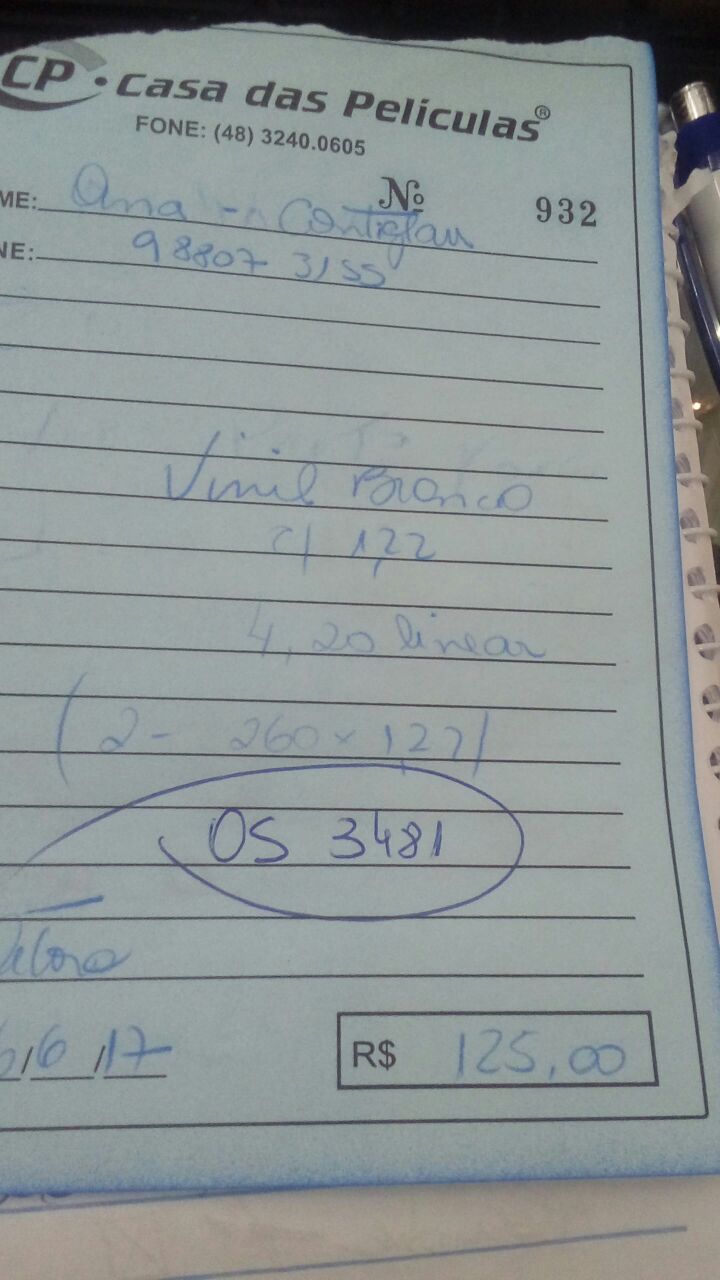 CP • Casa das Películas®
FONE: (48) 3240.0605
Nº 932
ME: Ana -
NE: 98807 3155
Vinil Branco
c/ 1,22
4,20 linear
(2- 260 x 1,27)
OS 3481
/6/17
R$ 125,00